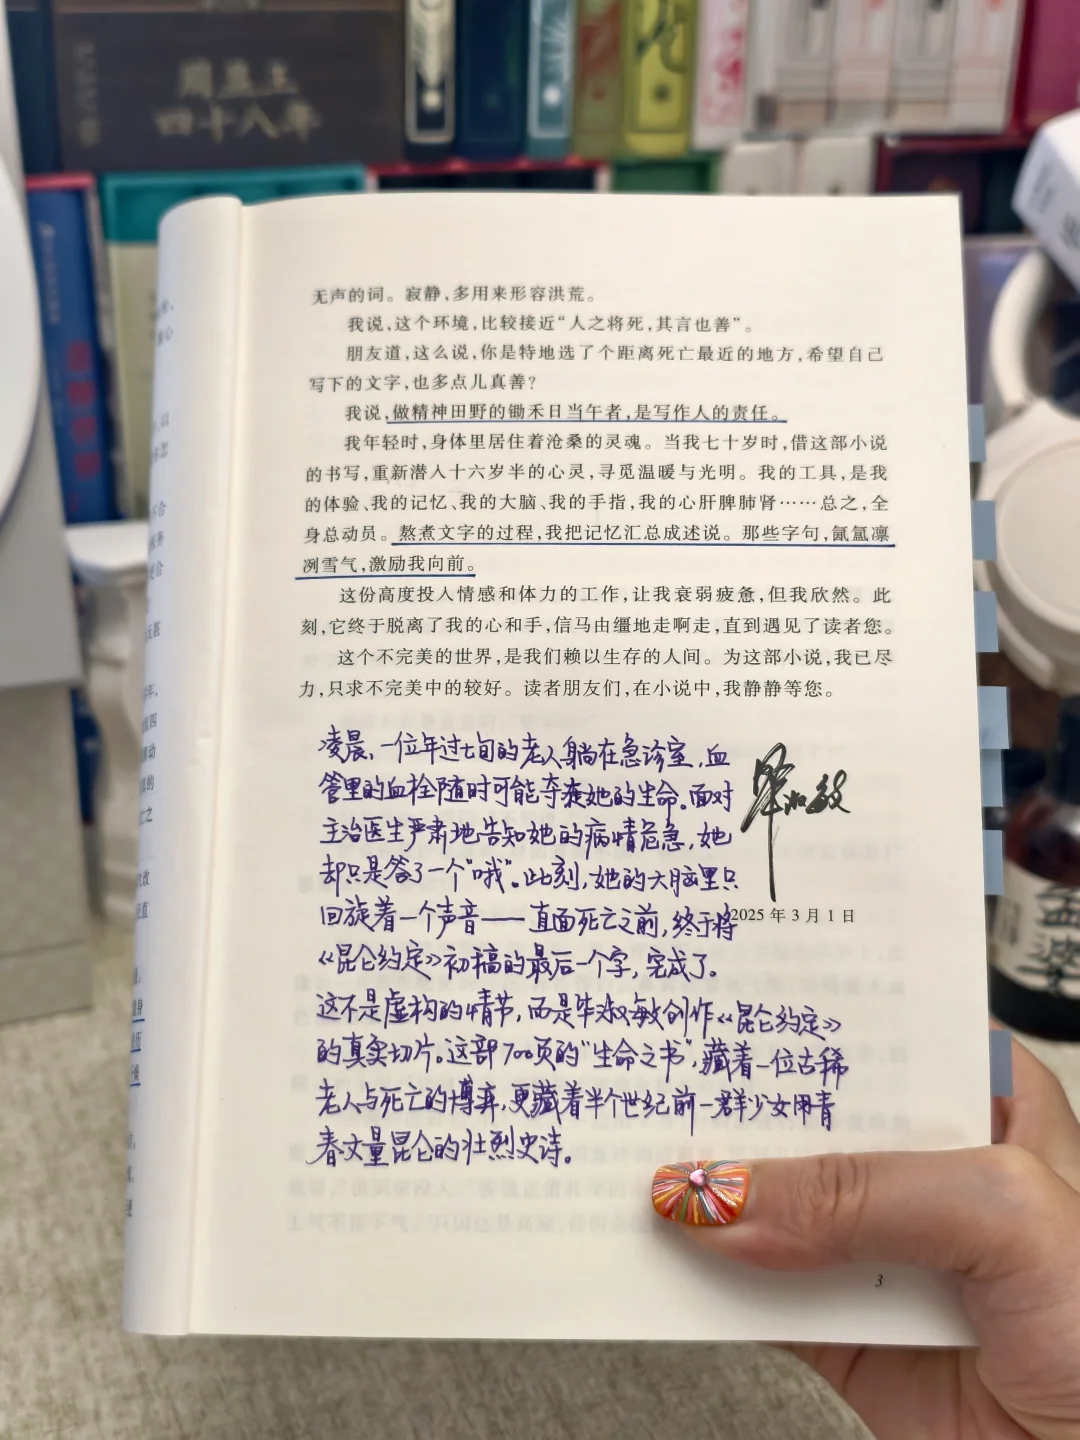 周益王
四十八年
无声的词。寂静，多用来形容洪荒。
我说，这个环境，比较接近“人之将死，其言也善”。
朋友道，这么说，你是特地选了个距离死亡最近的地方，希望自己
写下的文字，也多点儿真善？
我说，做精神田野的锄禾日当午者，是写作人的责任。
我年轻时，身体里居住着沧桑的灵魂。当我七十岁时，借这部小说
的书写，重新潜入十六岁半的心灵，寻觅温暖与光明。我的工具，是我
的体验、我的记忆、我的大脑、我的手指，我的心肝脾肺肾……总之，全
身总动员。熬煮文字的过程，我把记忆汇总成述说。那些字句，氤氲凛
冽雪气，激励我向前。
这份高度投入情感和体力的工作，让我衰弱疲惫，但我欣然。此
刻，它终于脱离了我的心和手，信马由缰地走啊走，直到遇见了读者您。
这个不完美的世界，是我们赖以生存的人间。为这部小说，我已尽
力，只求不完美中的较好。读者朋友们，在小说中，我静静等您。
凌晨，一位年过七旬的老人躺在急诊室，血
管里的血栓随时可能夺走她的生命。面对
主治医生严肃地告知她的病情危急，她
却只是答了一个“哦”。此刻，她的大脑里只
回旋着一个声音——直面死亡之前，终于将
《昆仑约定》初稿的最后一个字，完成了。
这不是虚构的情节，而是毕淑敏创作《昆仑约定》
的真实切片。这部700页的“生命之书”，藏着一位古稀
老人与死亡的博弈，更藏着半个世纪前一群少女用青
春丈量昆仑的壮烈史诗。
毕淑敏
2025年3月1日
3
孟婆